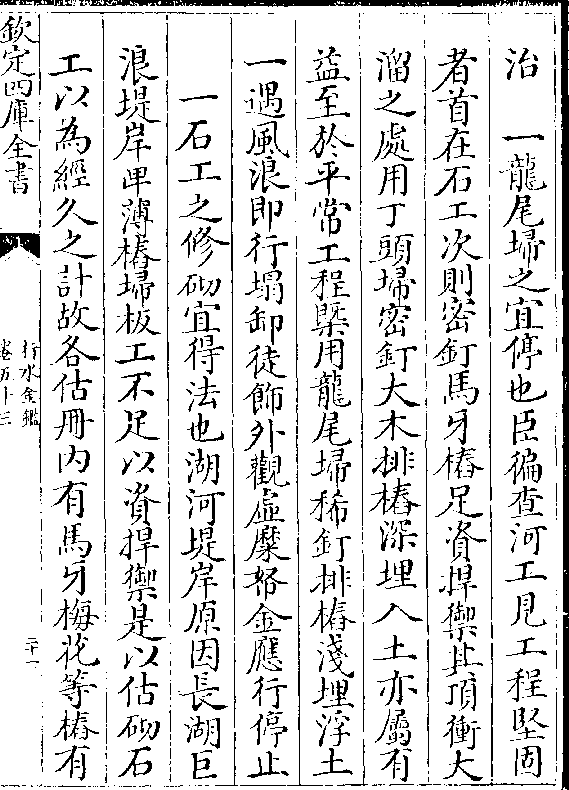 治　一龍尾埽之宜停也臣徧查河工見工程堅固
者首在石工次則密釘馬牙樁足資捍禦其頂衝大
溜之處用丁頭埽密釘大木排樁深埋入土亦屬有
益至於平常工程槩用龍尾埽稀釘排樁淺埋浮土
一遇風浪即行塌卸徒飾外觀虛糜帑金應行停止
一石工之修砌宜得法也湖河堤岸原因長湖巨
浪堤岸卑薄樁埽板工不足以資捍禦是以估砌石
工以為經久之計故各估冊内有馬牙梅花等樁有
欽定四庫全書
行水金鑑
卷五十三
二十一